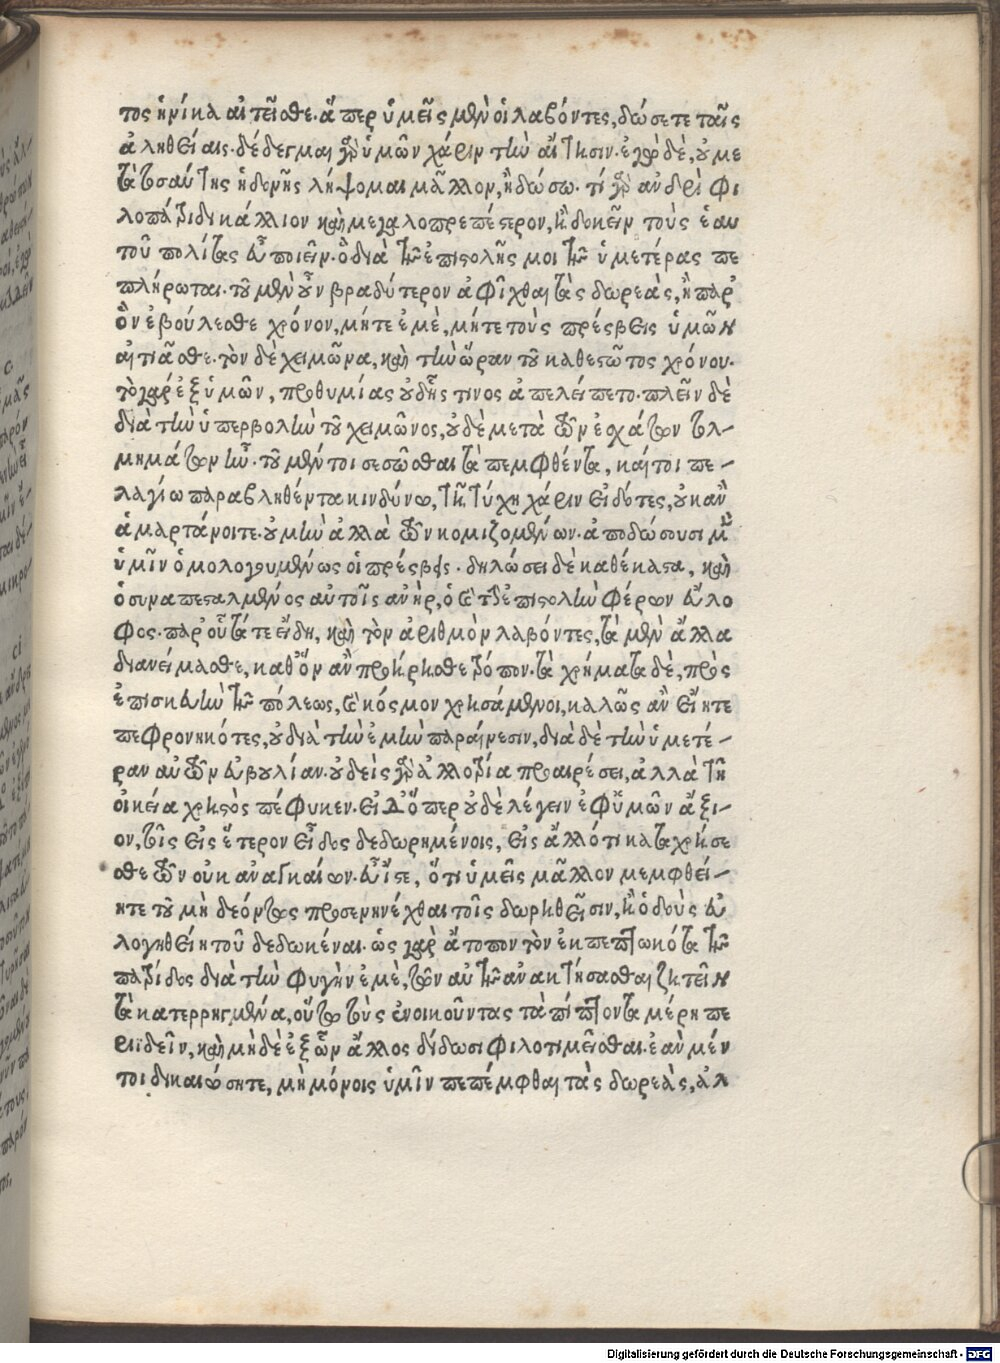 τος ἡνίκα αἰτεῖσθε. ἅπερ ὑμεῖς μὲν οἱ λαβόντες, δώσετε ταῖς
ἀληθείαις. δέδεγμαι γὰρ ὑμῶν χάριν τὴν αἴτησιν. ἐγὼ δὲ, οὐ με
τὰ τοσαύτης ἡδονῆς λήψομαι μᾶλλον, ἢ δώσω. τί γὰρ ἀνδρὶ φι
λοπάτριδι κάλλιον καὶ μεγαλοπρεπέστερον, ἢ δοκεῖν τοὺς ἑαυ
τοῦ πολίτας εὖ ποιεῖν. ὃ διὰ τῆς ἐπιστολῆς μοι τῆς ὑμετέρας πε
πλήρωται. τοῦ μὲν οὖν βραδύτερον ἀφῖχθαι τὰς δωρεὰς, ἢ παρ᾽
ὃν ἐβούλεσθε χρόνον, μήτε ἐμὲ, μήτε τοὺς πρέσβεις ὑμῶν
αἰτιᾶσθε. τὸν δὲ χειμῶνα, καὶ τὴν ὥραν τοῦ καθεστῶτος χρόνου.
τὸ γὰρ ἐξ ἡμῶν, προθυμίας οὐδεμιᾶς τινος ἀπελείπετο. πλεῖν δὲ
διὰ τὴν ὑπερβολὴν τοῦ χειμῶνος, οὐδὲ μετὰ τῶν ἐσχάτων τολ-
μημάτων ἦν. τοῦ μέντοι σεσῶσθαι τὰ πεμφθέντα, καίτοι πε-
λαγίω παραβληθέντα κινδύνω, τῇ τύχῃ χάριν εἰδότες, οὐκ ἂν
ἁμαρτάνοιτε. οὐ μὴν ἀλλὰ τῶν κομιζομένων. ἀποδώσουσι μὲν
ὑμῖν ὁμολογουμένως οἱ πρέσβεις. δηλώσει δὲ καθέκαστα, καὶ
ὁ συναπεσταλμένος αὐτοῖς ἀνὴρ, ὁ καὶ τὴν ἐπιστολὴν φέρων εὔλο
φος. παρ᾽ οὗ τά τε εἴδη, καὶ τὸν ἀριθμὸν λαβόντες, τὰ μὲν ἄλλα
διανείμασθε, καθ᾽ ὃν ἂν προῄρησθε τρόπον. τὰ χρήματα δὲ, πρὸς
ἐπισκευὴν τῆς πόλεως, καὶ κόσμον χρησάμενοι, καλῶς ἂν εἴητε
πεφρονηκότες, οὐ διὰ τὴν ἐμὴν παραίνεσιν, διὰ δὲ τὴν ὑμετέ-
ραν αὐτῶν εὐβουλίαν. οὐδεὶς γὰρ ἀλλοτρία προαιρέσει, ἀλλὰ τῇ
οἰκεία χρηστὸς πέφυκεν. εἰ δ᾽ ὅπερ οὐδὲ λέγειν ἐφ᾽ ὑμῶν ἄξι-
ον, τοῖς εἰς ἕτερον εἶδος δεδωρημένοις, εἰς ἄλλό τι καταχρήσε
σθε τῶν οὐκ ἀναγκαίων. εὖ ἴστε, ὅτι ὑμεῖς μᾶλλον μεμφθεί-
ητε τοῦ μὴ δεόντως προσενηνέχθαι τοῖς δωρηθεῖσιν, ἢ ὁ δοὺς εὐ
λογηθείη τοῦ δεδωκέναι. ὡς γὰρ ἄτοπον τὸν ἐκπεπτωκότα τῆς
πατρίδος διὰ τὴν φυγὴν ἐμὲ, τῶν αὐτῆς ἀνακτήσασθαι ζητεῖν
τὰ κατερρηγμένα, οὕτω τοὺς ἐνοικοῦντας τὰ πίπτοντα μέρη πε
ριϊδεῖν, καὶ μηδὲ ἐξ ὧν ἄλλος δίδωσι φιλοτιμεῖσθαι. ἐὰν μέν
τοι δικαιώσητε, μὴ μόνοις ὑμῖν πεπέμφθαι τὰς δωρεὰς, ἀλ